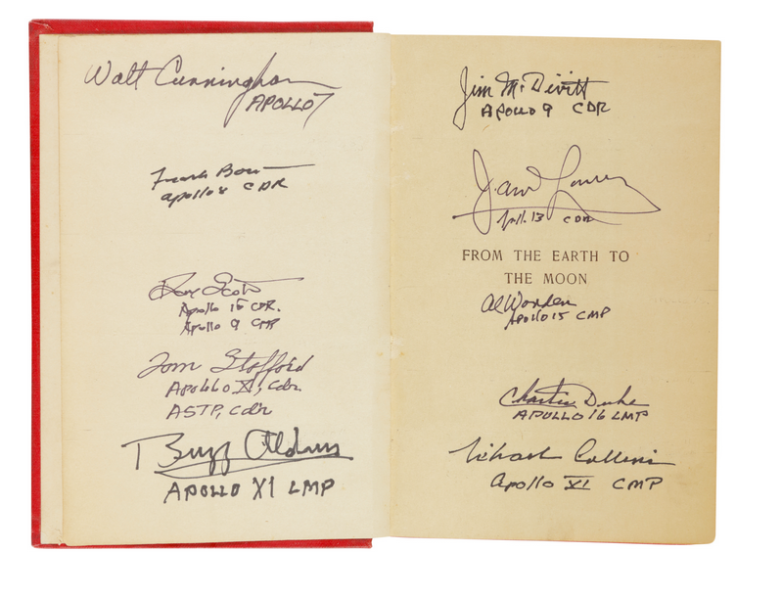 Walt Cunningham
APOLLO 7
Frank Borman
Apollo 8 CDR
Dave Scott
Apollo 15 CDR.
Apollo 9 CMP
Tom Stafford
Apollo X, Cdr.
ASTP, Cdr
Buzz Aldrin
APOLLO XI LMP
Jim McDivitt
APOLLO 9 CDR
James Lovell
Apollo 13 CDR
FROM THE EARTH TO
THE MOON
Al Worden
Apollo 15 CMP
Charlie Duke
APOLLO 16 LMP
Michael Collins
Apollo XI CMP